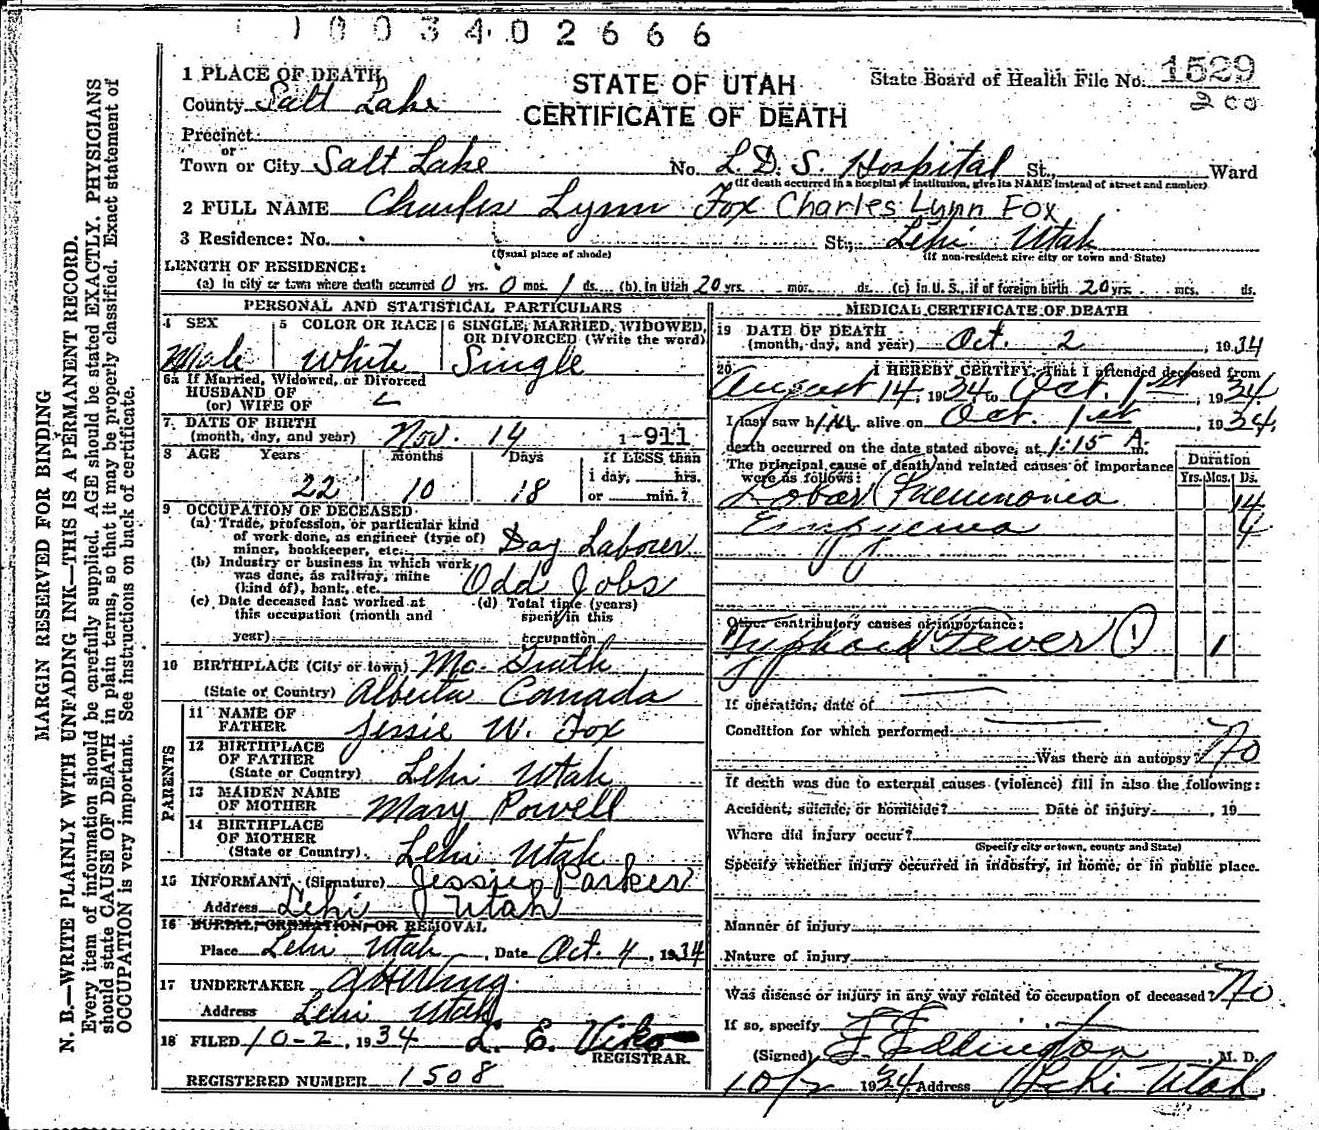 1003402666
1 PLACE OF DEATH
STATE OF UTAH
CERTIFICATE OF DEATH
State Board of Health File No. 1529
200
County Salt Lake
Precinct
or
Town or City Salt Lake No. L. D. S. Hospital St., Ward
(If death occurred in a hospital or institution, give its NAME instead of street and number)
2 FULL NAME Charles Lynn Fox Charles Lynn Fox
3 Residence: No. St., Lehi Utah
(Usual place of abode) (If non-resident give city or town and State)
LENGTH OF RESIDENCE:
(a) In city or town where death occurred 0 yrs. 0 mos. 1 ds. (b) In Utah 20 yrs. mos. ds. (c) in U. S., if of foreign birth 20 yrs. mos. ds.
PERSONAL AND STATISTICAL PARTICULARS
4 SEX Male
5 COLOR OR RACE White
6 SINGLE, MARRIED, WIDOWED, OR DIVORCED (Write the word) Single
6a If Married, Widowed, or Divorced
HUSBAND OF
(or) WIFE OF
7. DATE OF BIRTH
(month, day, and year) Nov. 14 1-911
8 AGE Years Months Days If LESS than
22 10 18 1 day, hrs.
or min.?
9 OCCUPATION OF DECEASED
(a) Trade, profession, or particular kind
of work done, as engineer (type of)
miner, bookkeeper, etc. Day Laborer
(b) Industry or business in which work
was done, as railway, mine
(kind of), bank, etc. Odd Jobs
(c) Date deceased last worked at
this occupation (month and
year)
(d) Total time (years)
spent in this
occupation
10 BIRTHPLACE (City or town) Mc. Grath
(State or Country) Alberta Canada
PARENTS
11 NAME OF
FATHER Jessie W. Fox
12 BIRTHPLACE
OF FATHER
(State or Country) Lehi Utah
13 MAIDEN NAME
OF MOTHER Mary Powell
14 BIRTHPLACE
OF MOTHER
(State or Country) Lehi Utah
15 INFORMANT (Signature) Jessie Parker
Address Lehi Utah
16 BURIAL, CREMATION, OR REMOVAL
Place Lehi Utah, Date Oct. 4, 1934
17 UNDERTAKER
Address Lehi Utah
18 FILED 10-2, 1934 L. E. Viko
REGISTRAR.
REGISTERED NUMBER 1508
MEDICAL CERTIFICATE OF DEATH
19 DATE OF DEATH
(month, day, and year) Oct. 2, 1934
20 I HEREBY CERTIFY, That I attended deceased from
August 14, 1934 to Oct. 1st, 1934
I last saw him alive on Oct. 1st, 1934,
death occurred on the date stated above, at 1:15 A. m.
The principal cause of death and related causes of importance
were as follows:
Duration
Yrs. Mos. Ds.
Lobar Pneumonia 14
Empyema 4
Other contributory causes of importance:
Typhoid Fever (1) 1
If operation, date of
Condition for which performed
Was there an autopsy? No
If death was due to external causes (violence) fill in also the following:
Accident, suicide, or homicide? Date of injury, 19
Where did injury occur?
(Specify city or town, county and State)
Specify whether injury occurred in industry, in home, or in public place.
Manner of injury
Nature of injury
Was disease or injury in any way related to occupation of deceased? No
If so, specify
(Signed) F Eddington, M. D.
10/2 1934 Address Lehi Utah
MARGIN RESERVED FOR BINDING
N. B.—WRITE PLAINLY WITH UNFADING INK—THIS IS A PERMANENT RECORD.
Every item of information should be carefully supplied. AGE should be stated EXACTLY. PHYSICIANS
should state CAUSE OF DEATH in plain terms, so that it may be properly classified. Exact statement of
OCCUPATION is very important. See instructions on back of certificate.